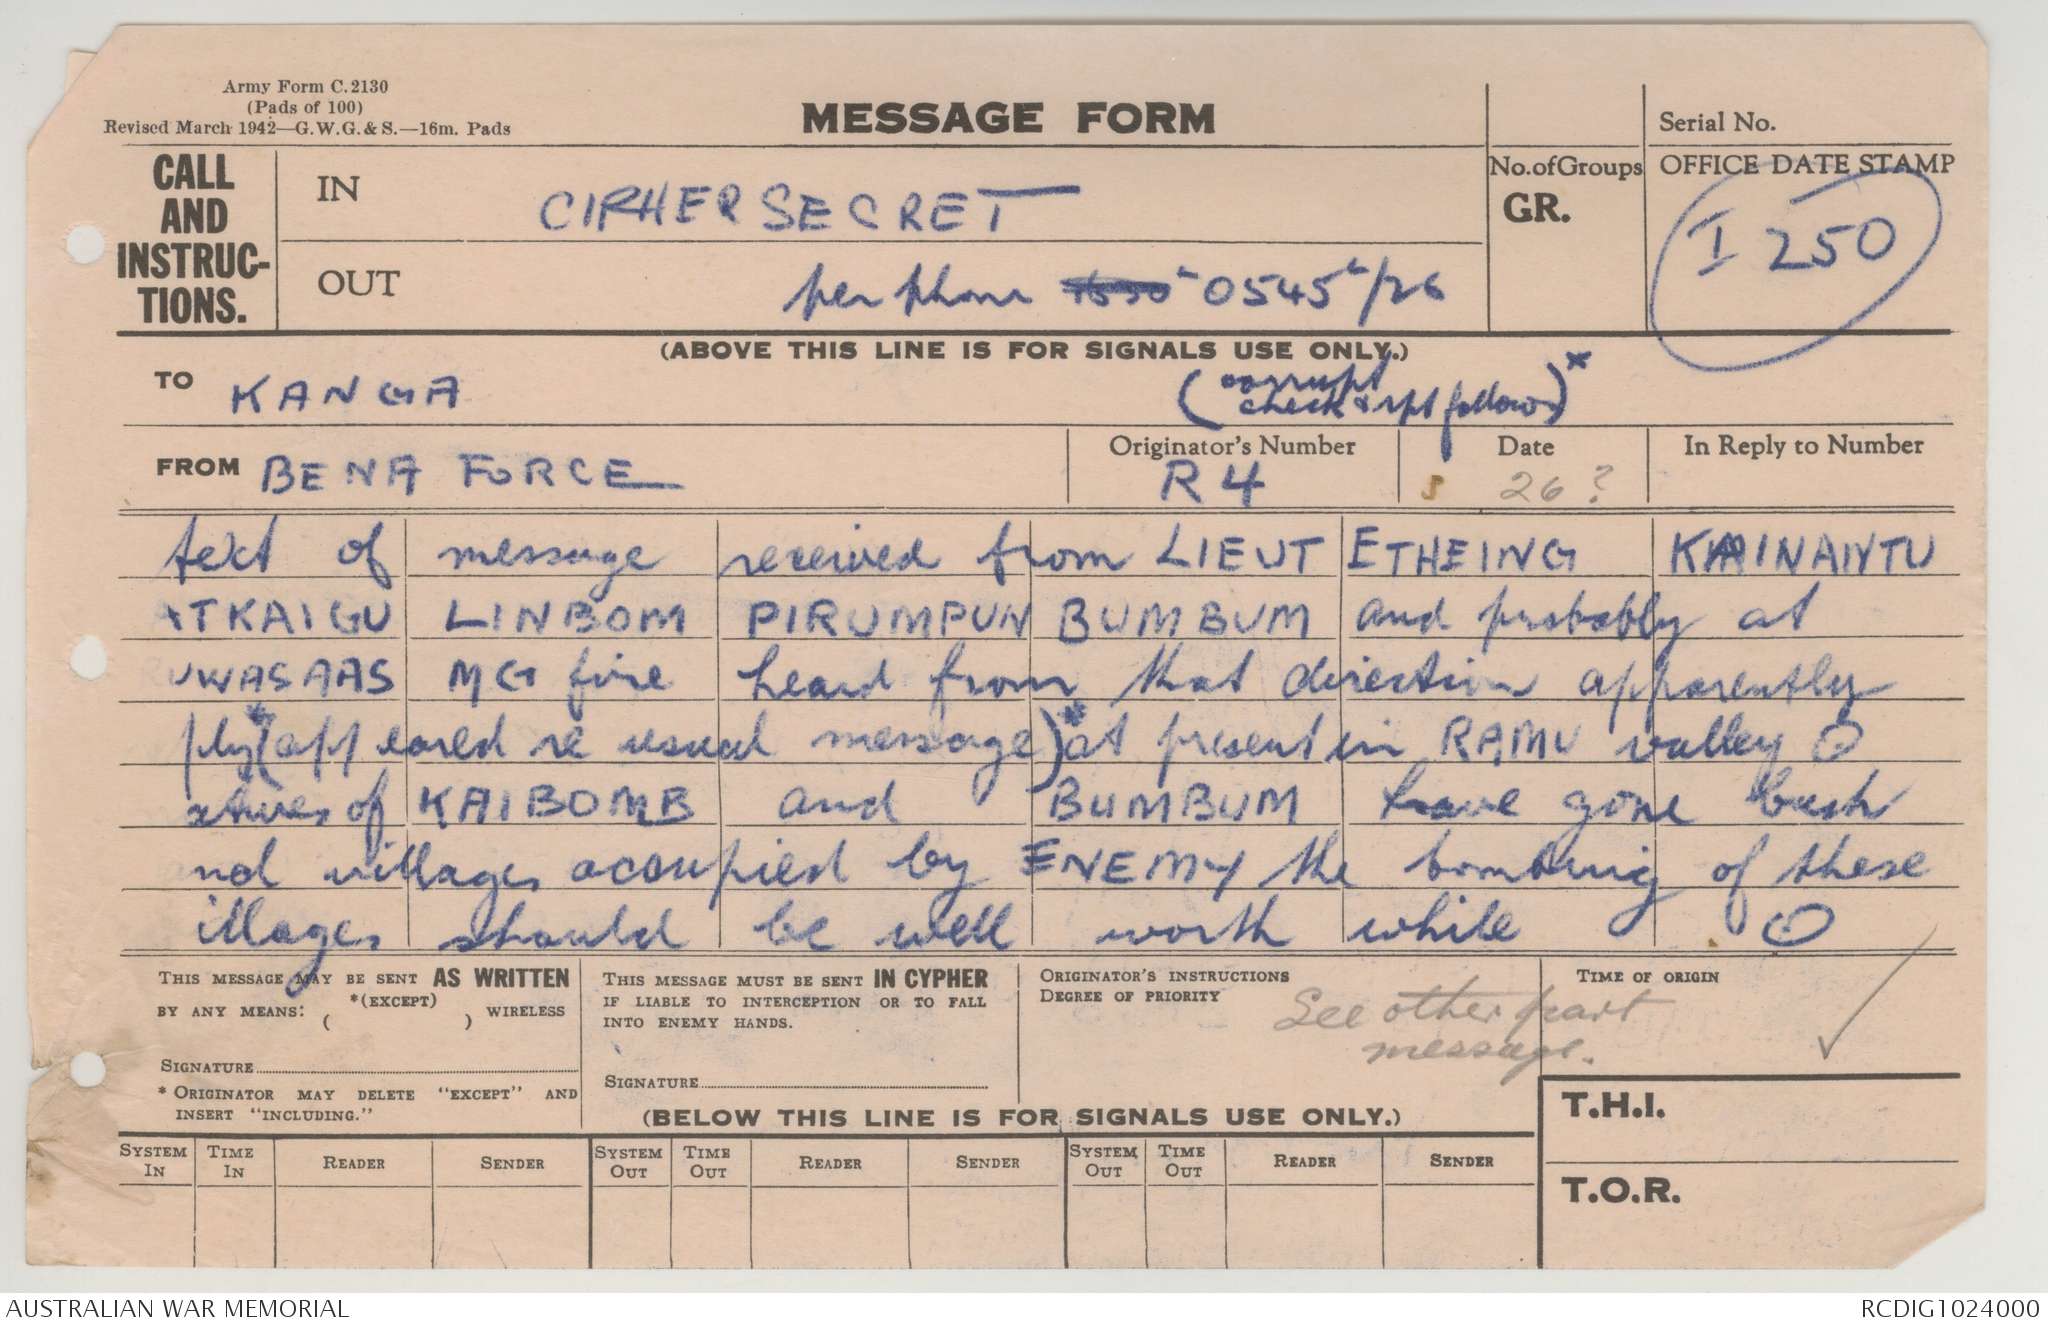 Army Form C.2130
(Pads of 100)
Revised March 1942—G.W.G.&S.—16m. Pads
MESSAGE FORM
Serial No.
CALL AND INSTRUC-TIONS.
IN
CIPHER SECRET
No.ofGroups
GR.
OFFICE DATE STAMP
I 250
OUT
per phone 0545L/26
(ABOVE THIS LINE IS FOR SIGNALS USE ONLY.)
TO KANGA
(corrupt
check & rpt follows)*
FROM BENA FORCE
Originator's Number
R4
Date
26?
In Reply to Number
text of message received from LIEUT ETHEING KAINANTU
ATKAIGU LINBOM PIRUMPUN BUMBUM and probably at
UWASAAS MG fire heard from that direction apparently
ply*(appeared re usual message)*at present in RAMU valley O
atives of KAIBOMB and BUMBUM have gone bush
nd villages occupied by ENEMY the bombing of these
illages should be well worth while O
THIS MESSAGE MAY BE SENT AS WRITTEN
BY ANY MEANS: *(EXCEPT) ( ) WIRELESS
SIGNATURE
* ORIGINATOR MAY DELETE "EXCEPT" AND
INSERT "INCLUDING."
THIS MESSAGE MUST BE SENT IN CYPHER
IF LIABLE TO INTERCEPTION OR TO FALL
INTO ENEMY HANDS.
SIGNATURE
ORIGINATOR'S INSTRUCTIONS
DEGREE OF PRIORITY
See other part
message.
TIME OF ORIGIN
(BELOW THIS LINE IS FOR SIGNALS USE ONLY.)
T.H.I.
T.O.R.
SYSTEM IN TIME IN READER SENDER SYSTEM OUT TIME OUT READER SENDER SYSTEM OUT TIME OUT READER SENDER
AUSTRALIAN WAR MEMORIAL
RCDIG1024000